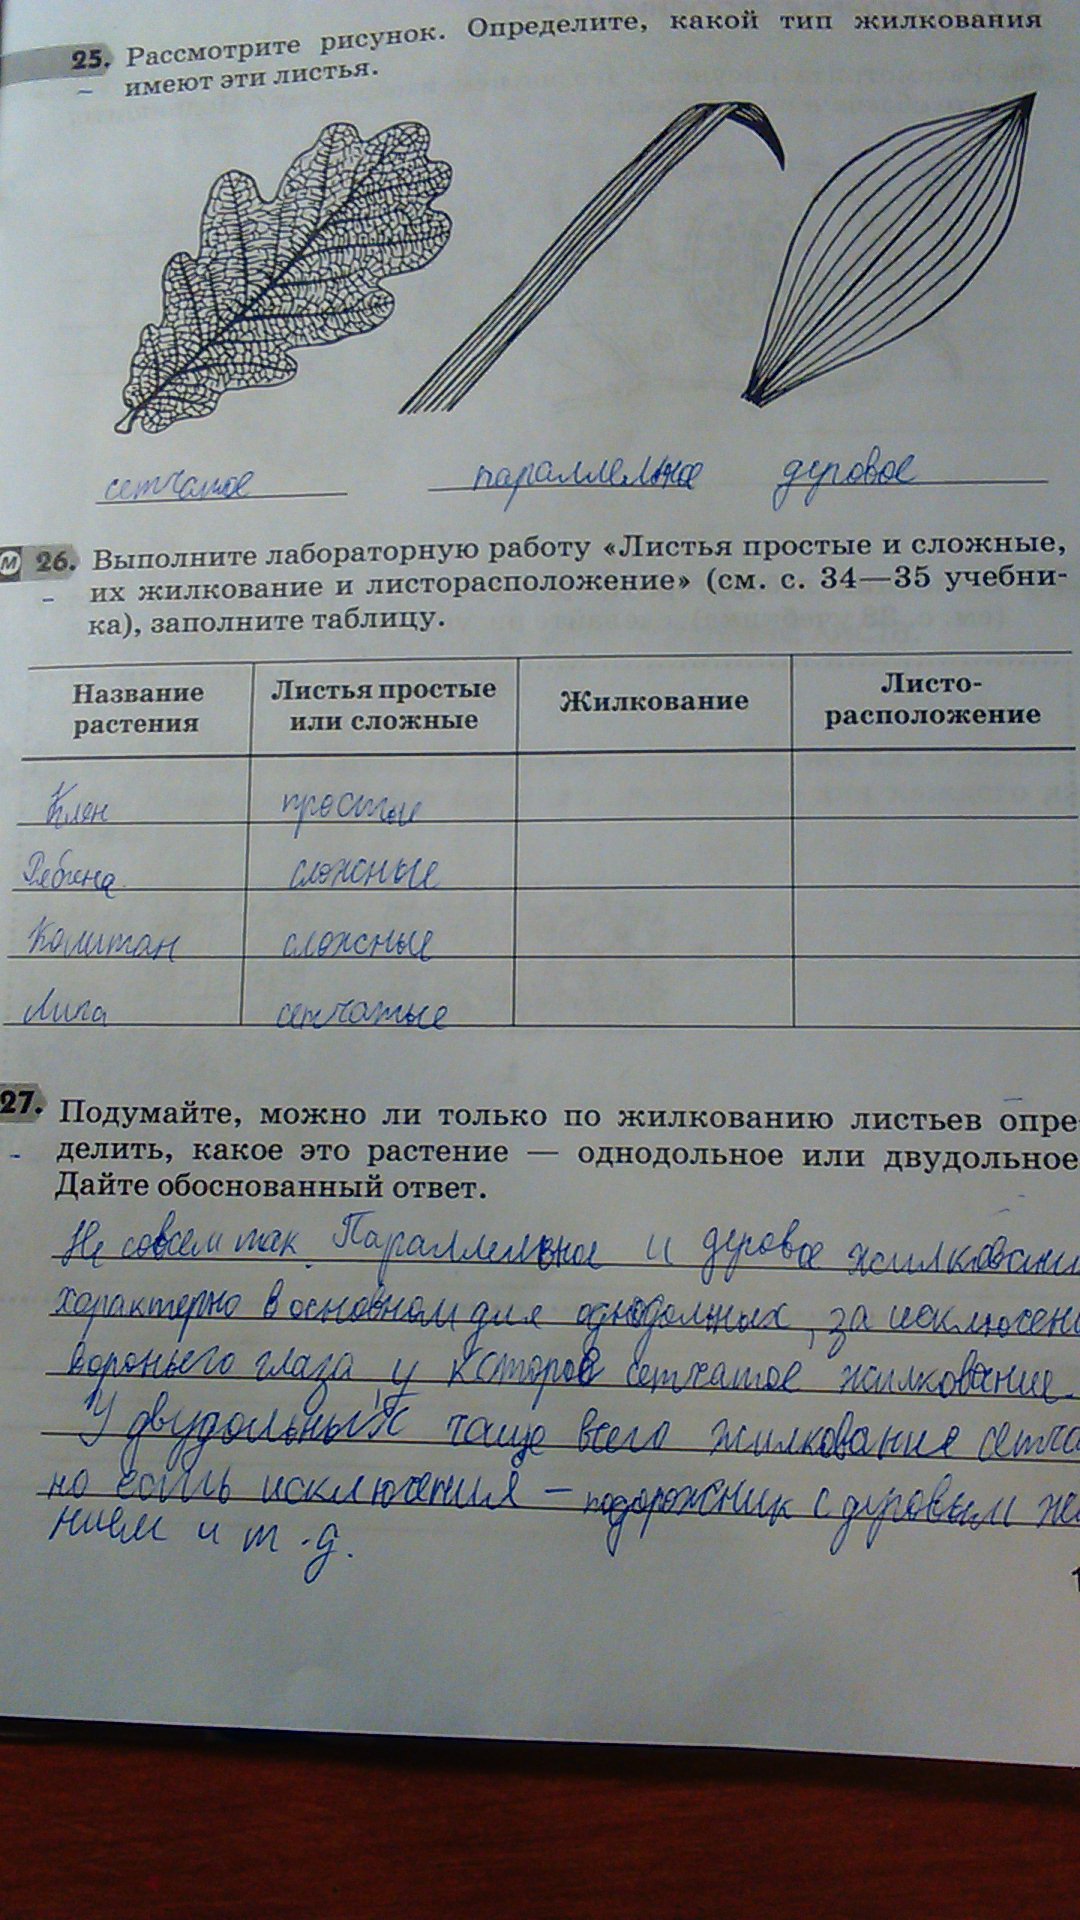 25. Рассмотрите рисунок. Определите, какой тип жилкования
имеют эти листья.
сетчатое параллельное дуговое
М 26. Выполните лабораторную работу «Листья простые и сложные,
их жилкование и листорасположение» (см. с. 34—35 учебни-
ка), заполните таблицу.
Название растения Листья простые или сложные Жилкование Листо-расположение
Клен простые
Рябина сложные
Каштан сложные
Липа сетчатые
27. Подумайте, можно ли только по жилкованию листьев опре-
делить, какое это растение — однодольное или двудольное
Дайте обоснованный ответ.
Не совсем так. Параллельное и дуговое жилковани
характерно в основном для однодольных, за исключени
вороньего глаза у которого сетчатое жилкование.
У двудольных чаще всего жилкование сетча
но есть исключения – подорожник с дуговым жи
нием и т.д.
1